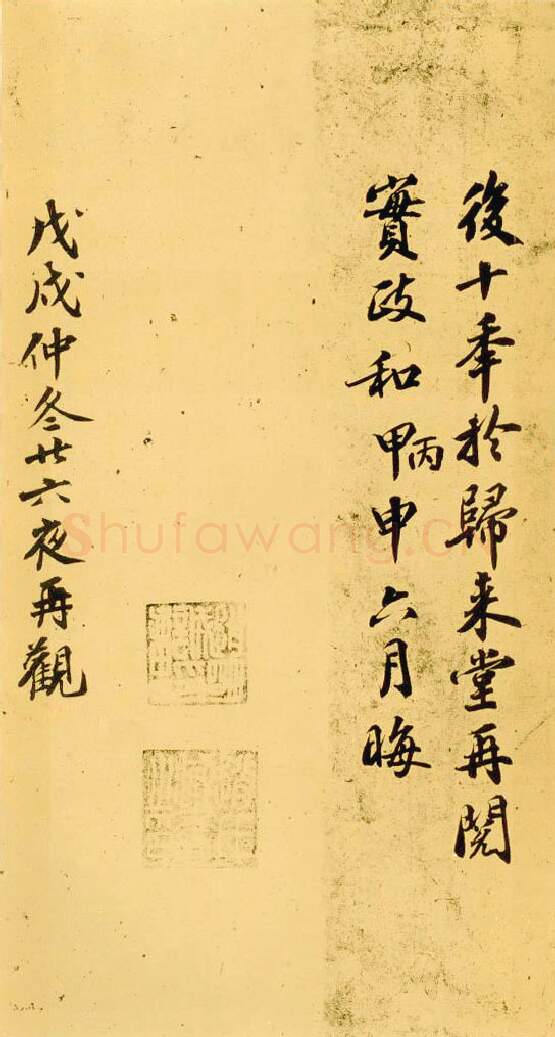 後十年於歸来堂再閱
實政和甲丙申六月晦
戊戌仲冬廿六夜再觀
Shufawang.cn